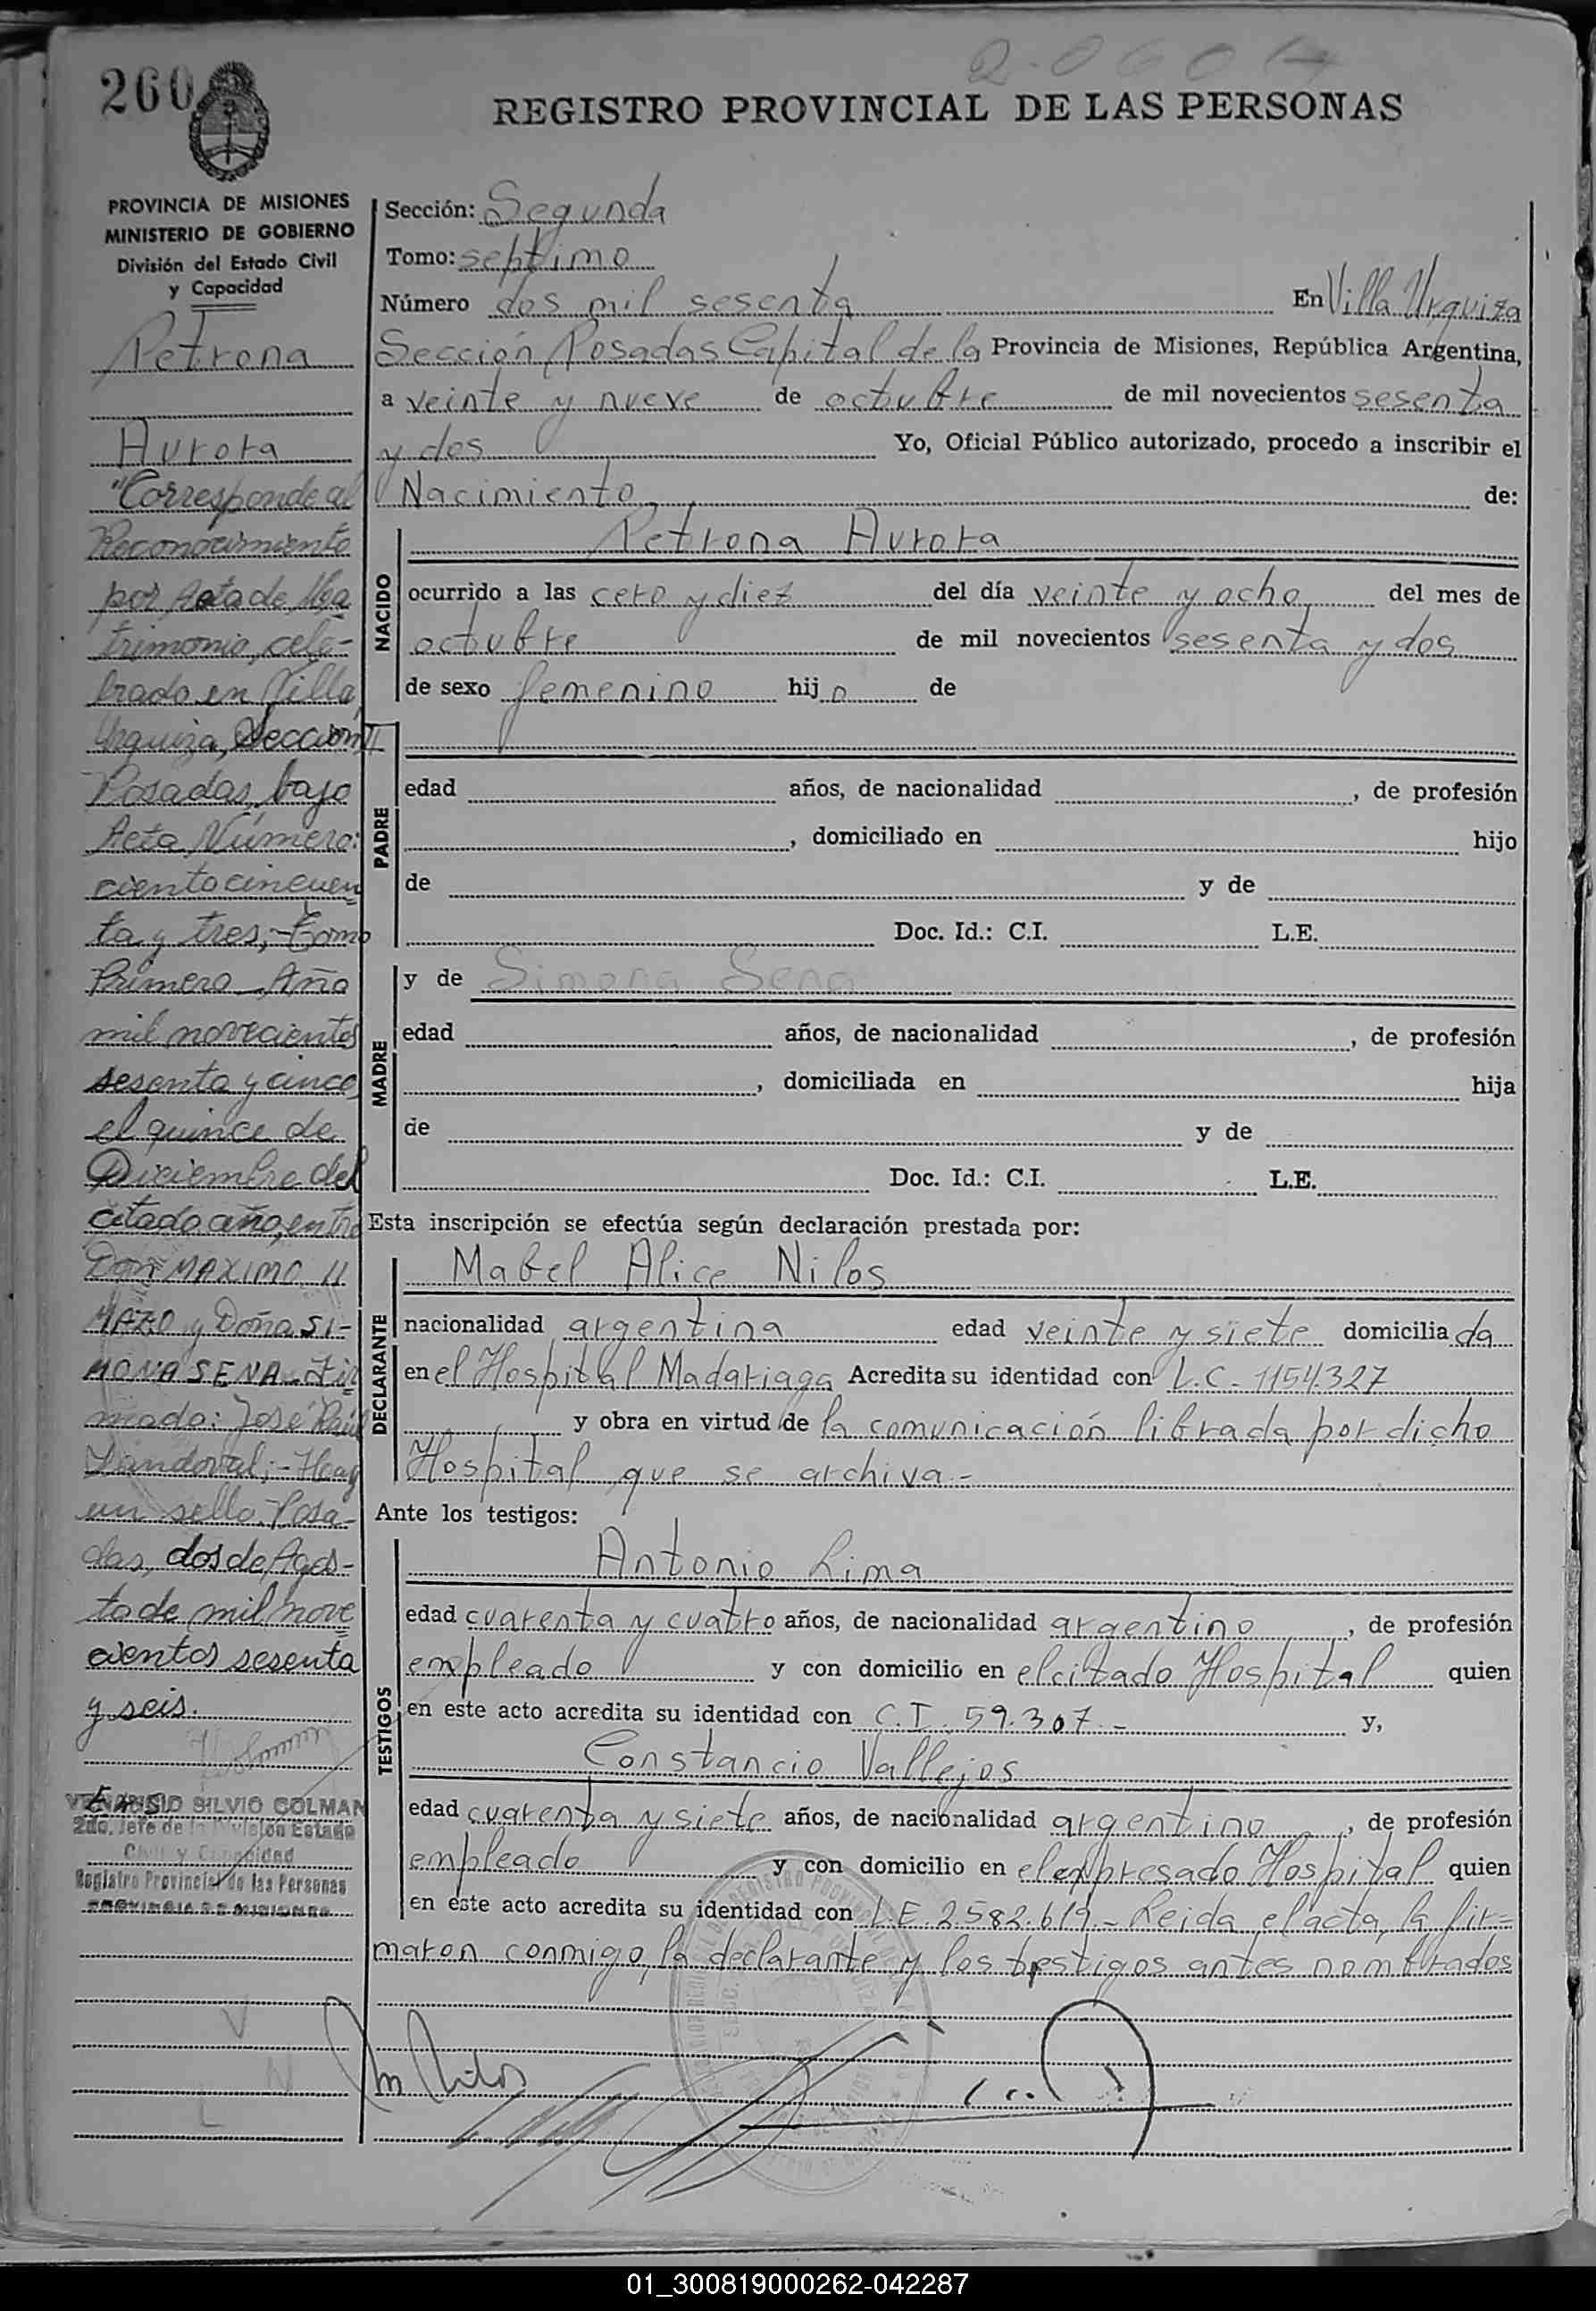 260
REGISTRO PROVINCIAL DE LAS PERSONAS
PROVINCIA DE MISIONES
MINISTERIO DE GOBIERNO
División del Estado Civil
y Capacidad
Petrona
Aurora
"Corresponde al
Reconocimiento
por Acta de Ma
trimonio, cele-
brado en Villa
Urquiza, Sección II
Posadas, bajo
Acta Número:
ciento cincuen
ta y tres,-Tomo
Primero-Año
mil novecientos
sesenta y cinco
el quince de
Diciembre del
citado año, entre
Don MAXIMO
y Doña SI-
MONA SENA-Fir
mado: José Raúl
Sandoval;-Hay
un sello.-Posa-
das, dos de Agos-
to de mil nove
cientos sesenta
y seis.
SILVIO COLMAN
2do. Jefe de la División Estado
Civil y Capacidad
Registro Provincial de las Personas
PROVINCIA DE MISIONES
Sección: Segunda
Tomo: septimo
Número dos mil sesenta En Villa Urquiza
Sección Posadas Capital de la Provincia de Misiones, República Argentina,
a veinte y nueve de octubre de mil novecientos sesenta
y dos Yo, Oficial Público autorizado, procedo a inscribir el
Nacimiento de:
NACIDO
Petrona Aurora
ocurrido a las cero y diez del día veinte y ocho del mes de
octubre de mil novecientos sesenta y dos
de sexo femenino hij a de
PADRE
edad años, de nacionalidad , de profesión
, domiciliado en hijo
de y de
Doc. Id.: C.I. L.E.
MADRE
y de Simona Sena
edad años, de nacionalidad , de profesión
, domiciliada en hija
de y de
Doc. Id.: C.I. L.E.
Esta inscripción se efectúa según declaración prestada por:
DECLARANTE
Mabel Alice Nilos
nacionalidad argentina edad veinte y siete domicilia da
en el Hospital Madariaga Acredita su identidad con L.C. - 1154.327
y obra en virtud de la comunicación librada por dicho
Hospital que se archiva.-
Ante los testigos:
TESTIGOS
Antonio Lima
edad cuarenta y cuatro años, de nacionalidad argentino , de profesión
empleado y con domicilio en el citado Hospital quien
en este acto acredita su identidad con C.I. 59.307.- y,
Constancio Vallejos
edad cuarenta y siete años, de nacionalidad argentino , de profesión
empleado y con domicilio en el expresado Hospital quien
en este acto acredita su identidad con L.E. 2.582.619 - Leida el acta, la fir=
maron conmigo, la declarante y los testigos antes nombrados
01_300819000262-042287